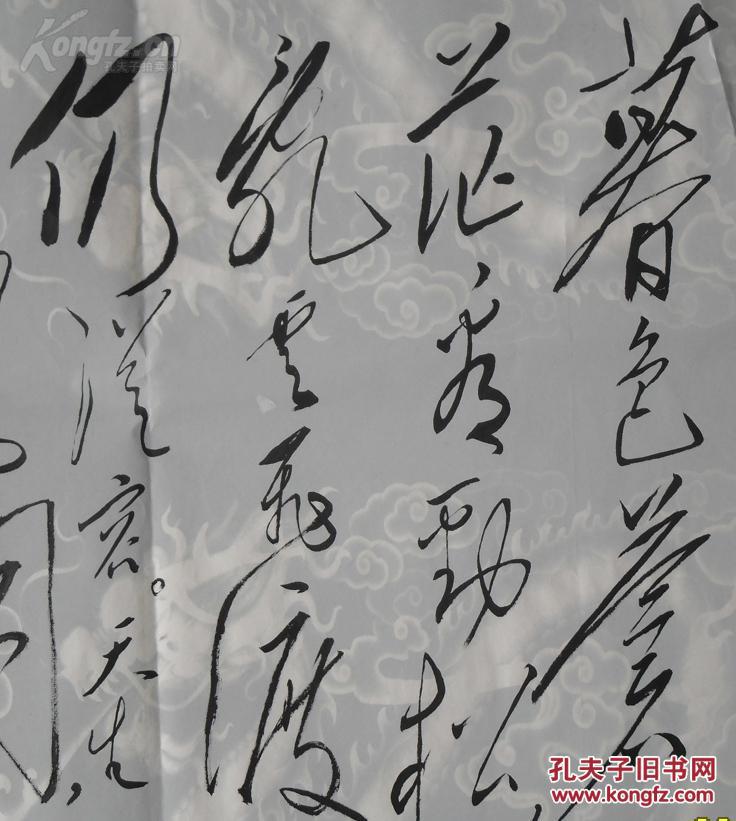 暮色苍
茫看劲松
乱云飞渡
仍从容。天生
Kongfz.cn
孔夫子拍卖网
孔夫子旧书网
www.kongfz.com